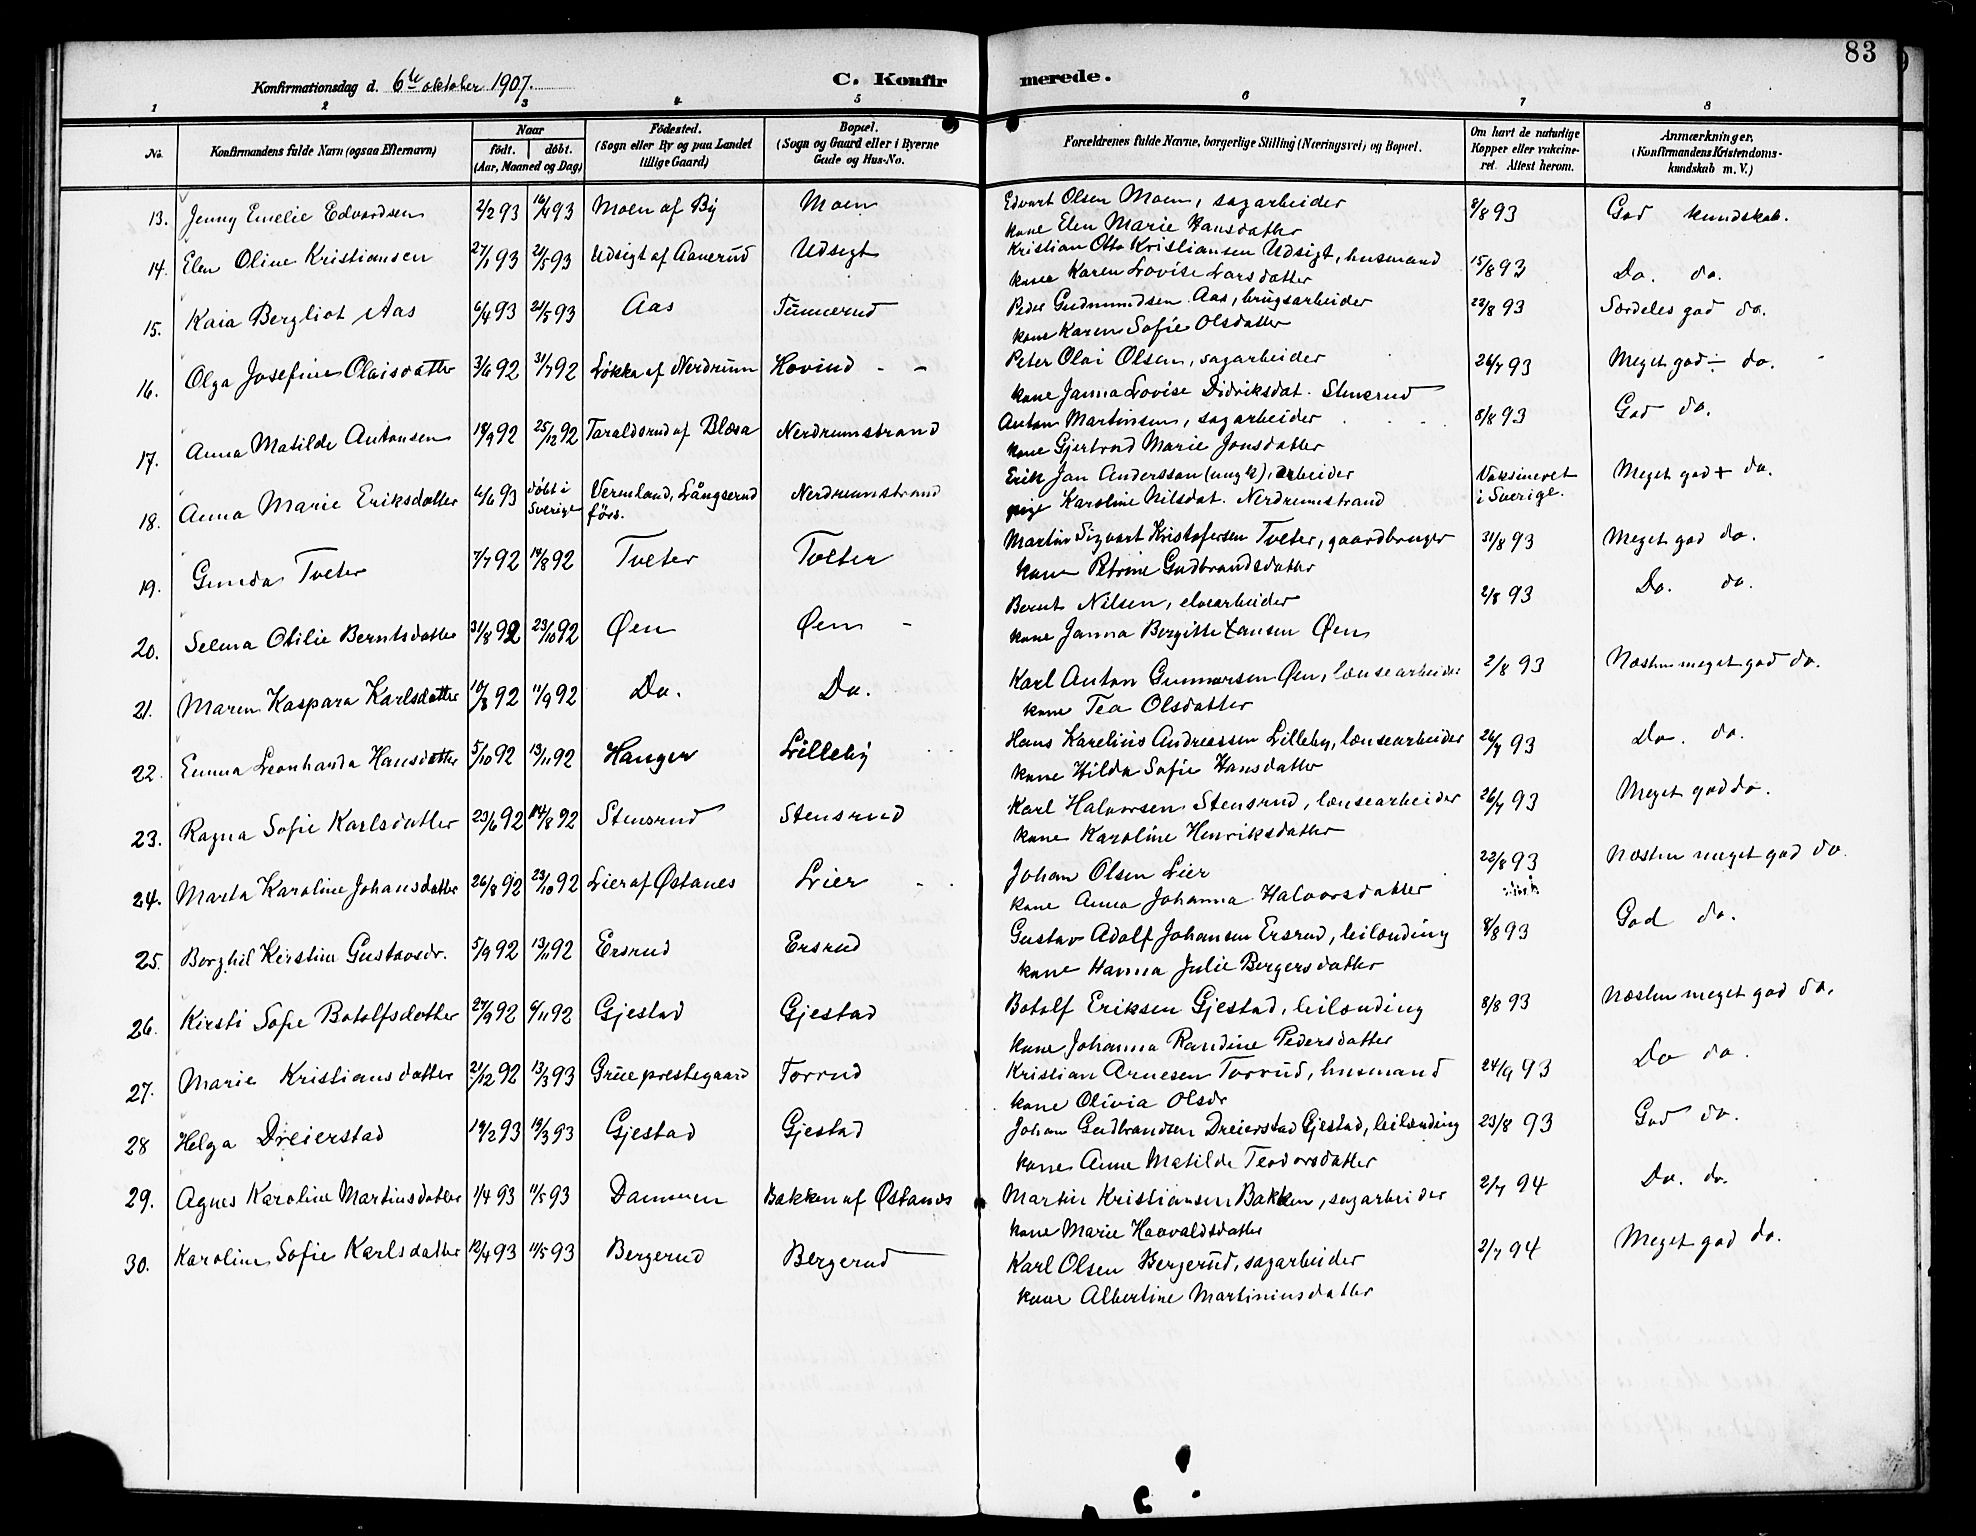 83
Konfirmationsdag d. 6te oktober 1907.
C. Konfirmerede.
1 2 3 4 5 6 7 8
No. Konfirmandens fulde Navn (ogsaa Efternavn) Naar født. døbt. (Aar, Maaned og Dag) Fødested. (Sogn eller By og paa Landet tillige Gaard) Bopæl. (Sogn og Gaard eller i Byerne Gade og Hus-No. Forældrenes fulde Navne, borgerlige Stilling (Næringsvei) og Bopæl. Om havt de naturlige Kopper eller vakcineret. Attest herom. Anmærkninger. (Konfirmandens Kristendomskundskab m. V.)
13. Jenny Emelie Edvardsen 2/2 93 16/4 93 Moen af By Moen Edvart Olsen Moen, sagarbeider 8/8 93 God kundskab.
kone Elen Marie Hansdatter
14. Elen Oline Kristiansen 27/1 93 21/5 93 Udsigt af Aanerud Udsigt Kristian Otto Kristiansen Udsigt, husmand 15/8 93 Do. do.
kone Karen Lovise Larsdatter
15. Kaia Bergliot Aas 6/4 93 21/5 93 Aas Tunnerud Peder Gudmundsen Aas, brugsarbeider 23/8 93 Særdeles god do.
kone Karen Sofie Olsdatter
16. Olga Josefine Olaisdatter 3/6 92 31/7 92 Løkka af Nerdrum Hovind - - Peter Olai Olsen, sagarbeider 26/7 93 Meget god ÷ do.
kone Janna Lovise Didriksdat. Stensrud
17. Anna Matilde Antonsen 18/9 92 25/12 92 Taraldsrud af Blæsa Nerdrumstrand Anton Martinsen, sagarbeider 8/8 93 God do.
kone Gjertrud Marie Jonsdatter
18. Anna Marie Eriksdatter 6/6 93 døbt i Sverige Vermland, Långserud förs. Nerdrumstrand Erik Jan Andersson (ungk), arbeider Vaksineret i Sverige. Meget god + do.
pige Karoline Nilsdat. Nerdrumstrand
19. Gunda Tveter 7/7 92 14/8 92 Tveter Tveter Martin Sigvart Kristofersen Tveter, gaardbruger 31/8 93 Meget god do.
kone Petrine Gudbrandsdatter
20. Selma Otilie Berntsdatter 31/8 92 23/10 92 Øen Øen - Bernt Nilsen, elvearbeider 2/8 93 Do. do.
kone Janna Bergitte Hansen Øen
21. Maren Kaspara Karlsdatter 10/8 92 11/9 92 Do. Do. Karl Anton Gunnarsen Øen, lænsearbeider 2/8 93 Næsten meget god do.
kone Tea Olsdatter
22. Emma Leonharda Hansdatter 5/10 92 13/11 92 Hanger Lilleby Hans Karelius Andreassen Lilleby, lænsearbeider 26/7 93 Do. do.
kone Hilda Sofie Hansdatter
23. Ragna Sofie Karlsdatter 23/6 92 14/8 92 Stensrud Stensrud Karl Halvorsen Stensrud, lænsearbeider 26/7 93 Meget god do.
kone Karoline Henriksdatter
24. Marta Karoline Johansdatter 26/8 92 23/10 92 Lier af Østanes Lier Johan Olsen Lier 22/8 93 Næsten meget god do.
kone Anna Johanna Halvorsdatter
25. Borghil Kirstine Gustavsdr. 5/9 92 13/11 92 Ersrud Ersrud Gustav Adolf Johansen Ersrud, leilænding 8/8 93 God do.
kone Hanna Julie Bergersdatter
26. Kirsti Sofie Botolfsdatter 27/9 92 6/11 92 Gjestad Gjestad Botolf Eriksen Gjestad, leilænding 8/8 93 Næsten meget god do.
kone Johanna Randine Pedersdatter
27. Marie Kristiansdatter 21/12 92 13/3 93 Grue prestegaard Torrud Kristian Arnesen Torrud, husmand 24/9 93 Do do.
kone Olivia Olsdr
28 Helga Dreierstad 14/2 93 19/3 93 Gjestad Gjestad Johan Gudbrandsen Dreierstad Gjestad, leilænding 23/8 93 God do.
kone Anne Matilde Teodorsdatter
29. Agnes Karoline Martinsdatter 1/4 93 11/5 93 Dammen Bakken af Østanes Martin Kristiansen Bakken, sagarbeider 2/7 94 Do. do.
kone Marie Haavaldsdatter
30. Karoline Sofie Karlsdatter 12/4 93 11/5 93 Bergerud Bergerud Karl Olsen Bergerud, sagarbeider 2/7 94 Meget god do.
kone Albertine Martiniusdatter